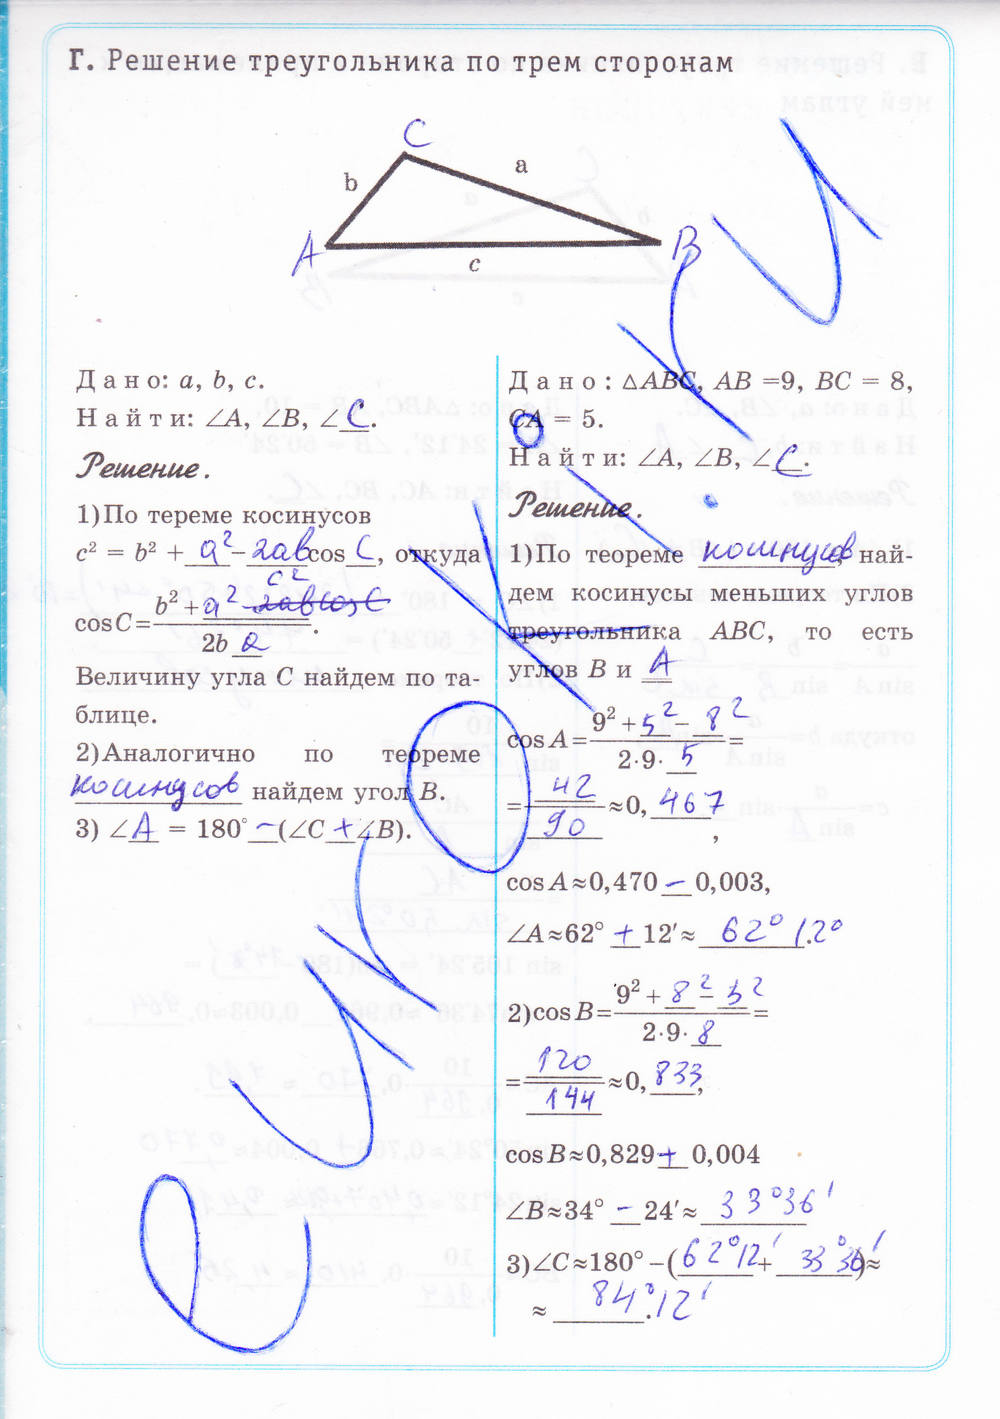 Г. Решение треугольника по трем сторонам
C
b
a
A
B
c
Дано: a, b, c.
Найти: ∠A, ∠B, ∠C.
Решение.
1) По тереме косинусов
c² = b² + a² - 2ab cos C, откуда
c²
cos C = b² + a² - 2abcosC / 2b a.
Величину угла C найдем по та-
блице.
2) Аналогично по теореме
косинусов найдем угол B.
3) ∠A = 180° - (∠C + ∠B).
Дано: △ABC, AB =9, BC = 8,
CA = 5.
Найти: ∠A, ∠B, ∠C.
Решение.
1) По теореме косинусов най-
дем косинусы меньших углов
треугольника ABC, то есть
углов B и A
cos A = 9² + 5² - 8² / 2·9·5 =
= 42 / 90 ≈ 0,467,
cos A ≈ 0,470 - 0,003,
∠A ≈ 62° + 12′ ≈ 62° 12°.
2) cos B = 9² + 8² - 5² / 2·9·8 =
= 120 / 144 ≈ 0,833,
cos B ≈ 0,829 + 0,004
∠B ≈ 34° - 24′ ≈ 33°36′
3) ∠C ≈ 180° – (62°12′ + 33°36′) ≈
≈ 84°12′.
euroki